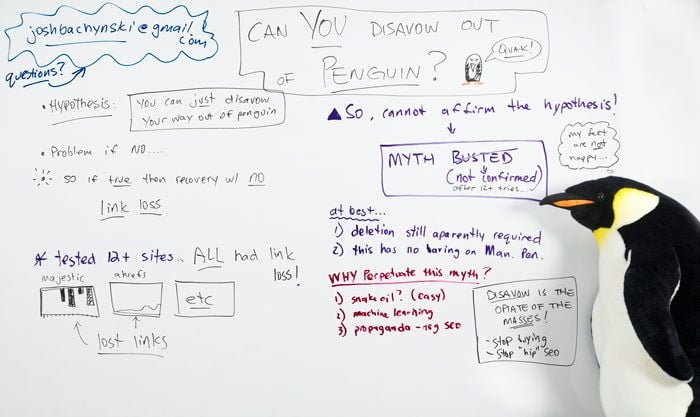 joshbachynski@gmail.
com
questions?
CAN YOU DISAVOW OUT
OF PENGUIN?
QUAK!
• Hypothesis:
You can just disavow
Your way out of penguin
• Problem if NO....
so if true then recovery w/ no
link loss
* tested 12+ sites.. ALL had link
loss!
majestic
ahrefs
etc
lost links
▲ So, cannot affirm the hypothesis!
MYTH BUSTED
(not confirmed)
after 12+ tries...
my feet
are not
happy...
at best...
1) deletion still aparently required
2) this has no baring on Man. Pen.
WHY Perpetuate this myth?
1) snake oil? (easy)
2) machine learning
3) propaganda - neg SEO
DISAVOW IS THE
OPIATE OF THE
MASSES!
- stop buying
- stop "hip" SEO